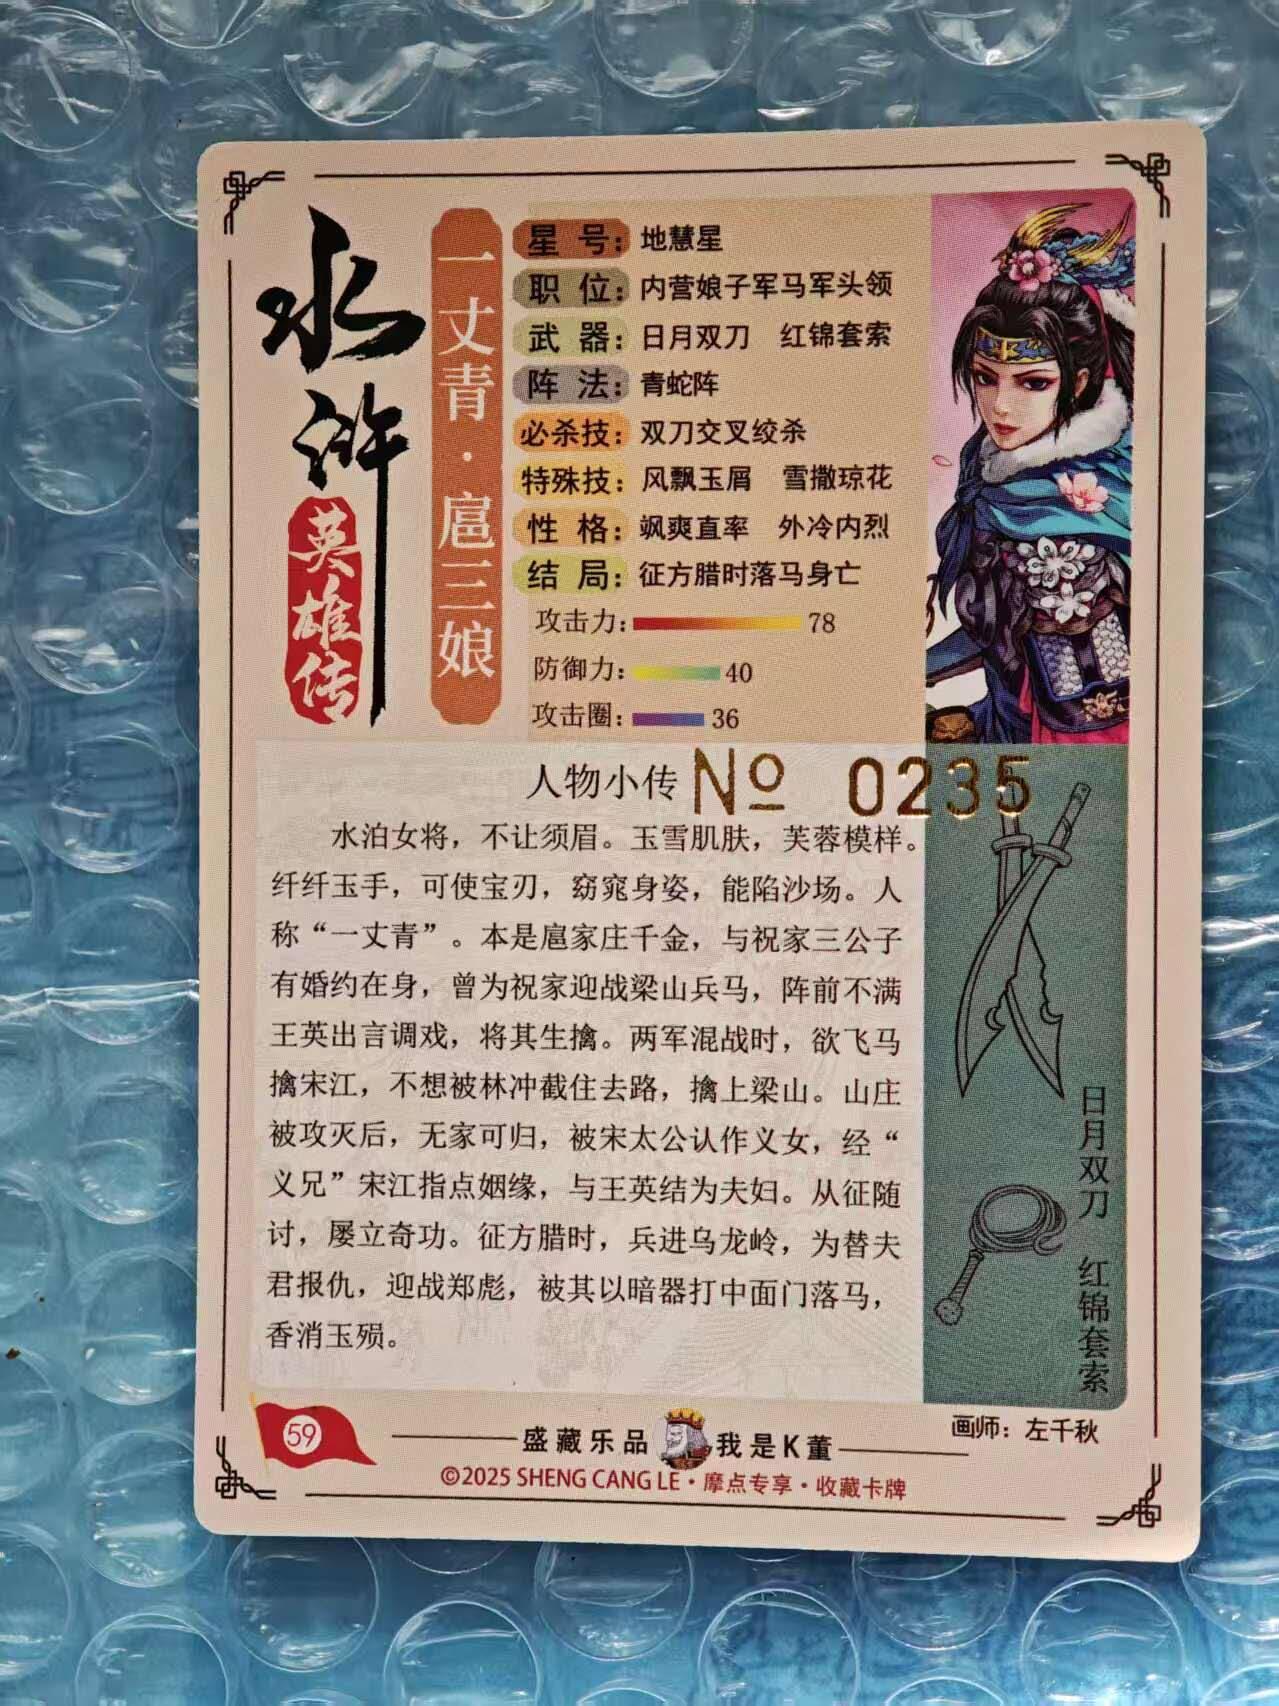 水浒
英雄传
一丈青·扈三娘
星号：地慧星
职位：内营娘子军马军头领
武器：日月双刀 红锦套索
阵法：青蛇阵
必杀技：双刀交叉绞杀
特殊技：风飘玉屑 雪撒琼花
性格：飒爽直率 外冷内烈
结局：征方腊时落马身亡
攻击力：78
防御力：40
攻击圈：36
人物小传 № 0235
水泊女将，不让须眉。玉雪肌肤，芙蓉模样。
纤纤玉手，可使宝刃，窈窕身姿，能陷沙场。人
称“一丈青”。本是扈家庄千金，与祝家三公子
有婚约在身，曾为祝家迎战梁山兵马，阵前不满
王英出言调戏，将其生擒。两军混战时，欲飞马
擒宋江，不想被林冲截住去路，擒上梁山。山庄
被攻灭后，无家可归，被宋太公认作义女，经“
义兄”宋江指点姻缘，与王英结为夫妇。从征随
讨，屡立奇功。征方腊时，兵进乌龙岭，为替夫
君报仇，迎战郑彪，被其以暗器打中面门落马，
香消玉殒。
日月双刀 红锦套索
59
盛藏乐品 我是K董
画师：左千秋
©2025 SHENG CANG LE·摩点专享·收藏卡牌